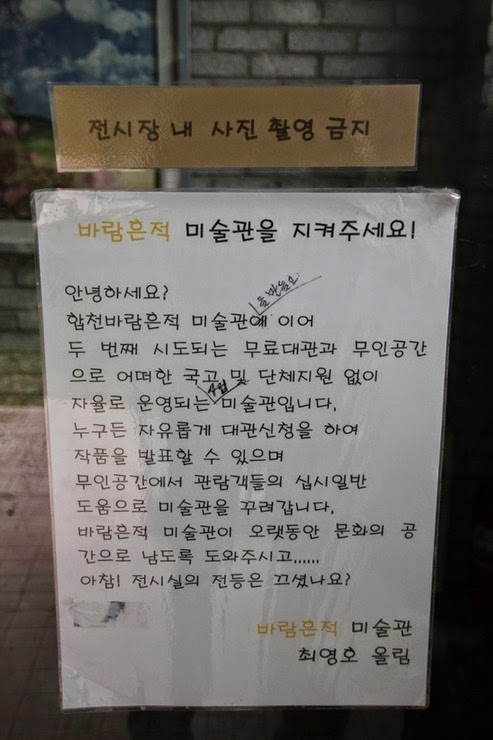 전시장 내 사진 촬영 금지
바람흔적 미술관을 지켜주세요!
안녕하세요?
합천바람흔적 미술관에 이어
두 번째 시도되는 무료대관과 무인공간
으로 어떠한 국고 및 단체지원 없이
자율로 운영되는 미술관입니다.
누구든 자유롭게 대관신청을 하여
작품을 발표할 수 있으며
무인공간에서 관람객들의 십시일반
도움으로 미술관을 꾸려갑니다.
바람흔적 미술관이 오랫동안 문화의 공
간으로 남도록 도와주시고......
아참! 전시실의 전등은 끄셨나요?
바람흔적 미술관
최영호 올림